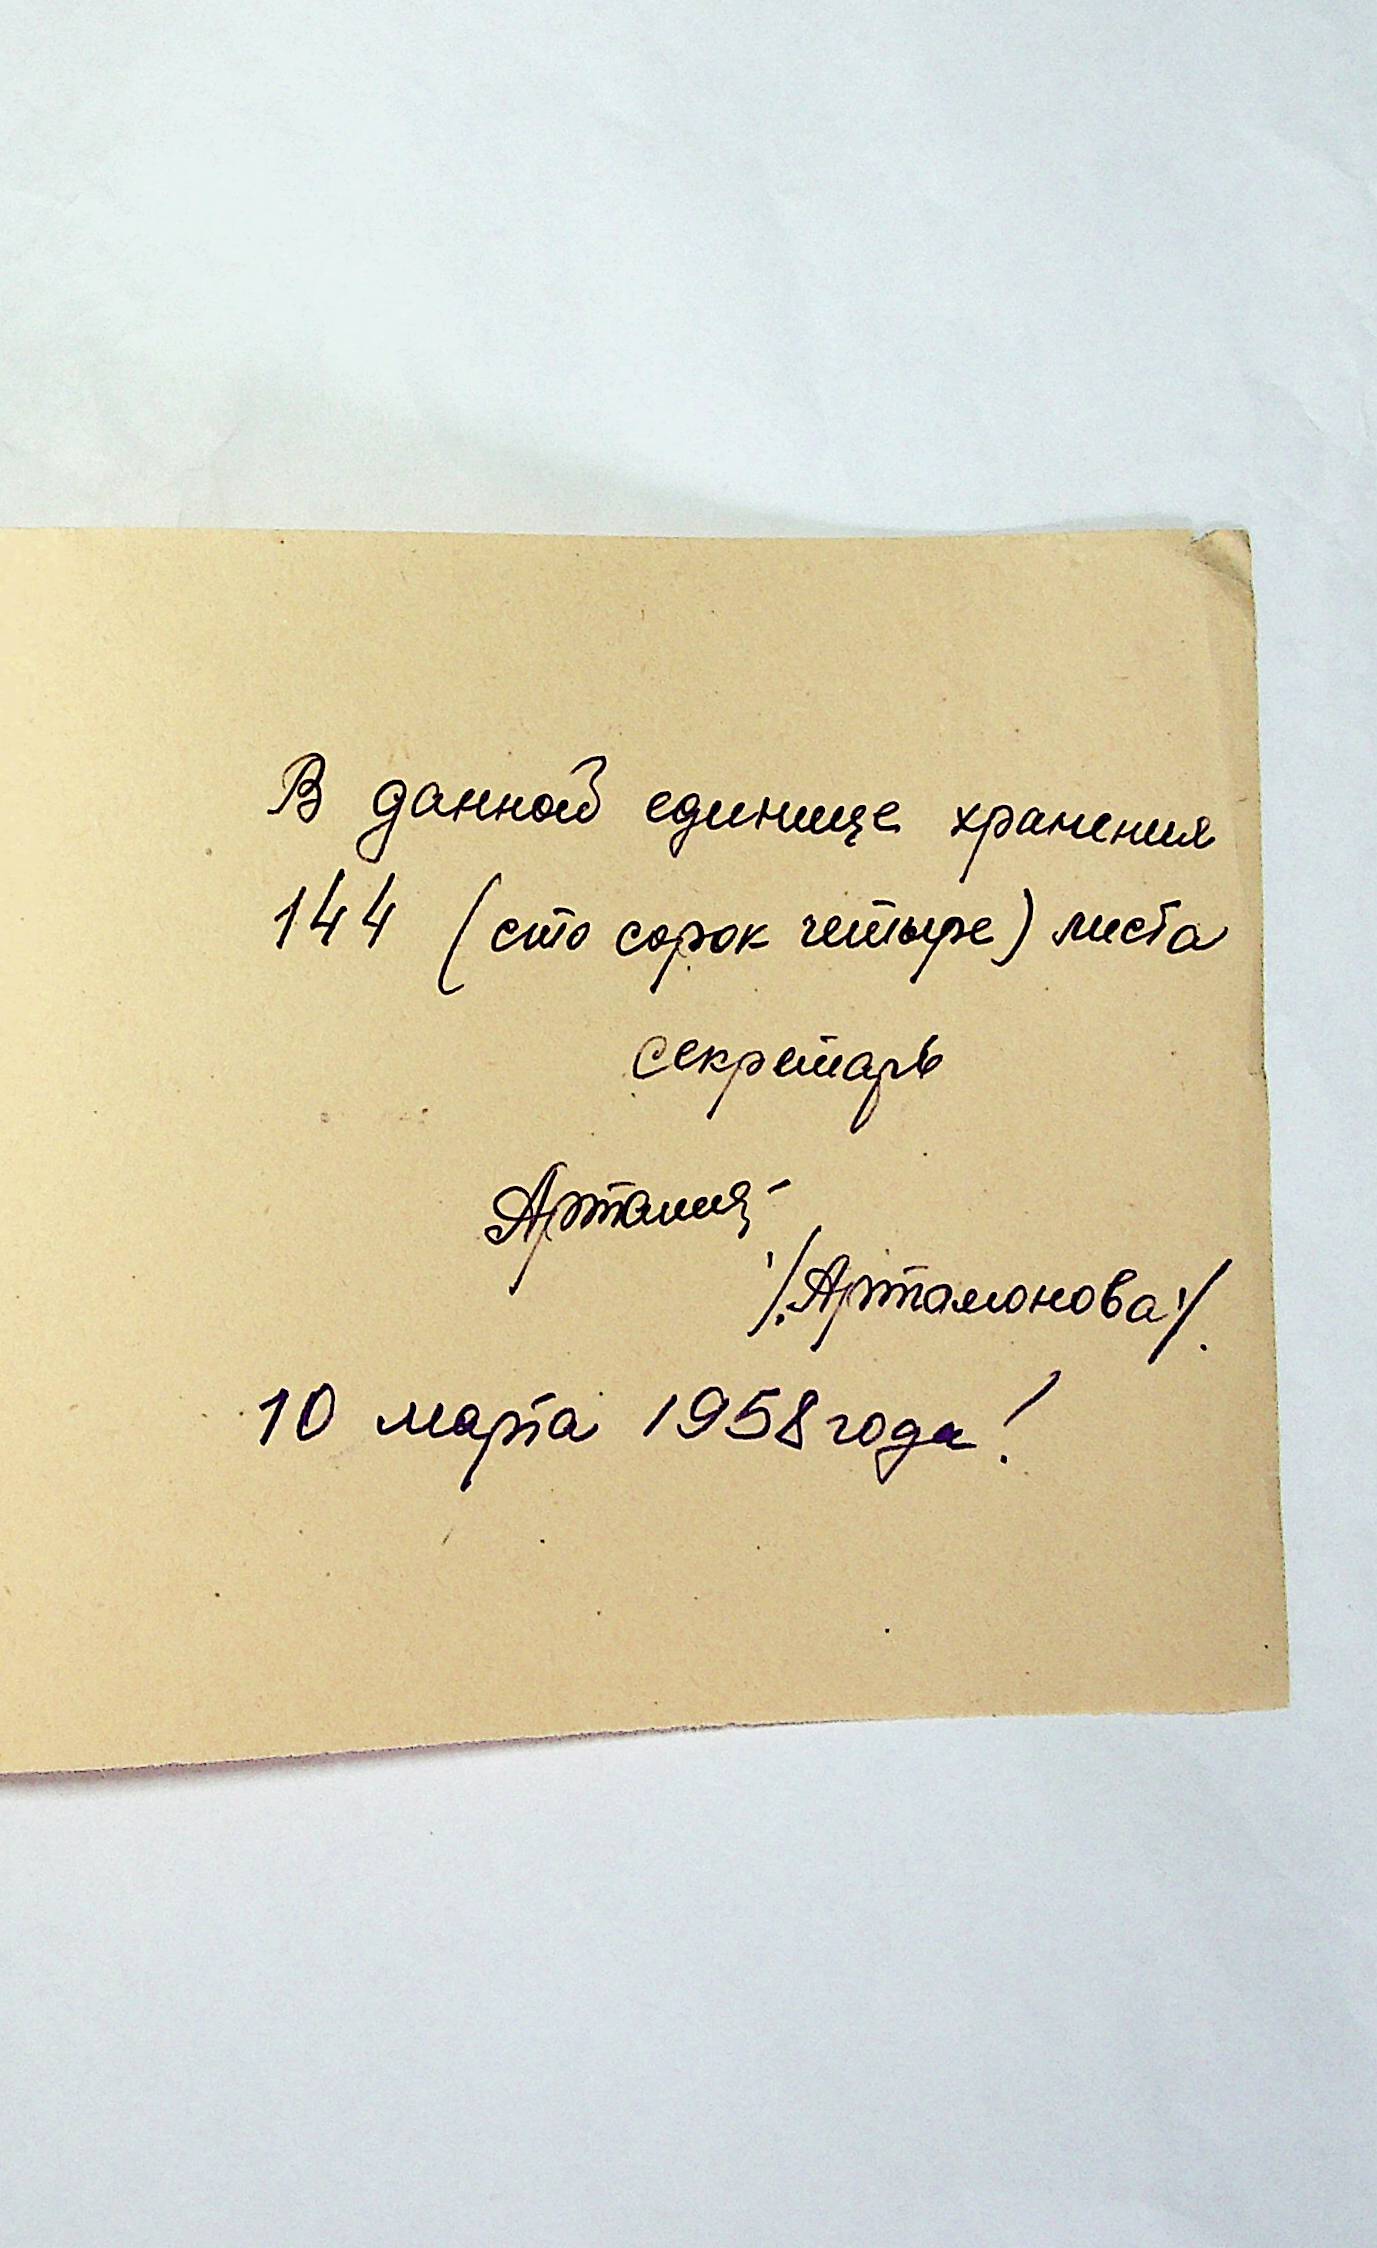 В данной единице хранения
144 (сто сорок четыре) листа
секретарь
/Артамонова/.
10 марта 1958 года!